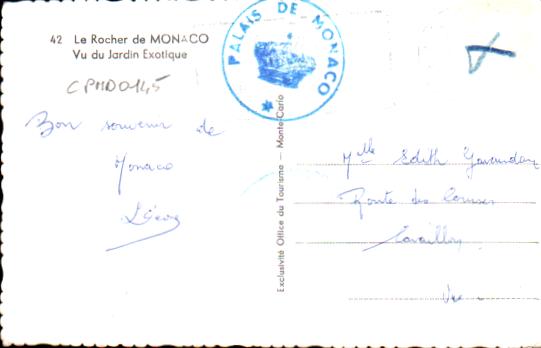 42 Le Rocher de MONACO
Vu du Jardin Exotique
CPMD0145
PALAIS DE MONACO
Bon souvenir de
Monaco
Exclusivité Office du Tourisme — Monte-Carlo
Mlle Edith
Route des
Cavaillon